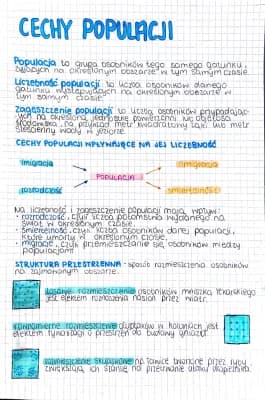 CECHY POPULACJI
Populacja to grupa osobników tego samego gatunku,
żyjących na określonym obszarze w tym samym czasie.
Liczebność populacji to liczba osobników danego
gatunku występujących na określonym obszarze w
tym samym czasie.
Zagęszczenie populacji to liczba osobników przypadając-
ych na określoną jednostkę powierzchni lub objętości
środowiska, na przykład metr kwadratowy łąki lub metr
sześcienny wody w jeziorze.
CECHY POPULACJI WPŁYWAJĄCE NA JEJ LICZEBNOŚĆ
imigracja emigracja
POPULACJA
rozrodczość śmiertelność
Na liczebność i zagęszczenie populacji mają wpływ:
- rozrodczość, czyli liczba potomstwa wydanego na
świat w określonym czasie.
- śmiertelność, czyli liczba osobników danej populacji,
które umarły w określonym czasie.
- migracje, czyli przemieszczanie się osobników między
populacjami.
STRUKTURA PRZESTRZENNA - sposób rozmieszczenia osobników
na zajmowanym obszarze.
Losowe rozmieszczenie osobników mniszka lekarskiego
jest efektem roznoszenia nasion przez wiatr.
Równomierne rozmieszczenie głuptaków w koloniach jest
efektem rywalizacji o przestrzeń do budowy gniazd.
Rozmieszczenie skupiskowe na ławice tworzone przez ryby
zwiększają ich szanse na przetrwanie ataku drapieżnika.